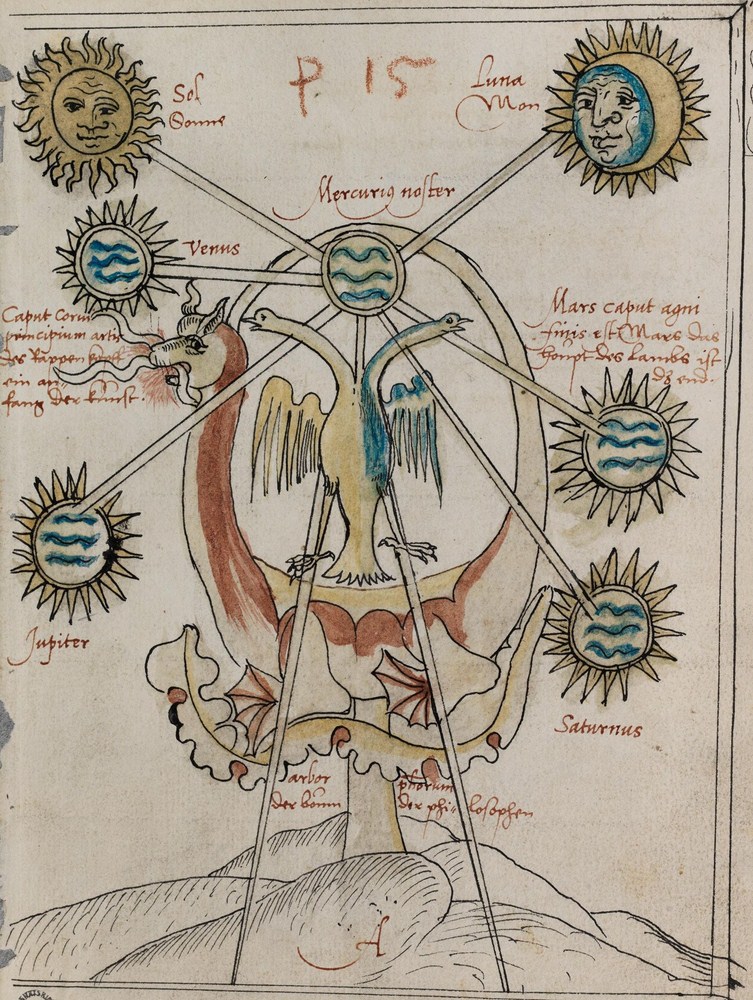 p 15
Sol
Sonne
Luna
Mon
Mercuriꝯ noster
Venus
Caput Corui
principium artis
des Rappen
ein an-
fang der kunst.
Mars caput agni
finis est Mars das
houpt des lambs ist
dʒ end.
Jupiter
Saturnus
arbor
der boum
phorum
der phi- losophen
A